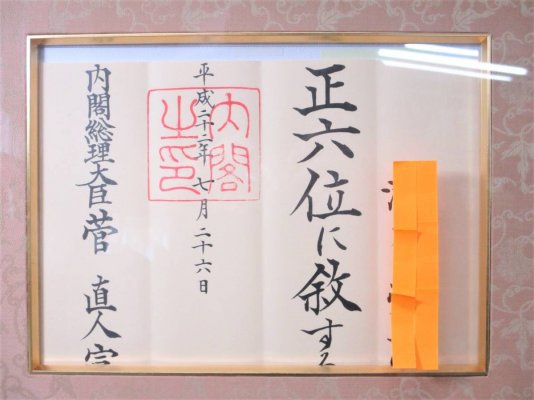 正六位に叙す
平成二十二年七月二十六日
内閣之印
内閣総理大臣菅直人宣